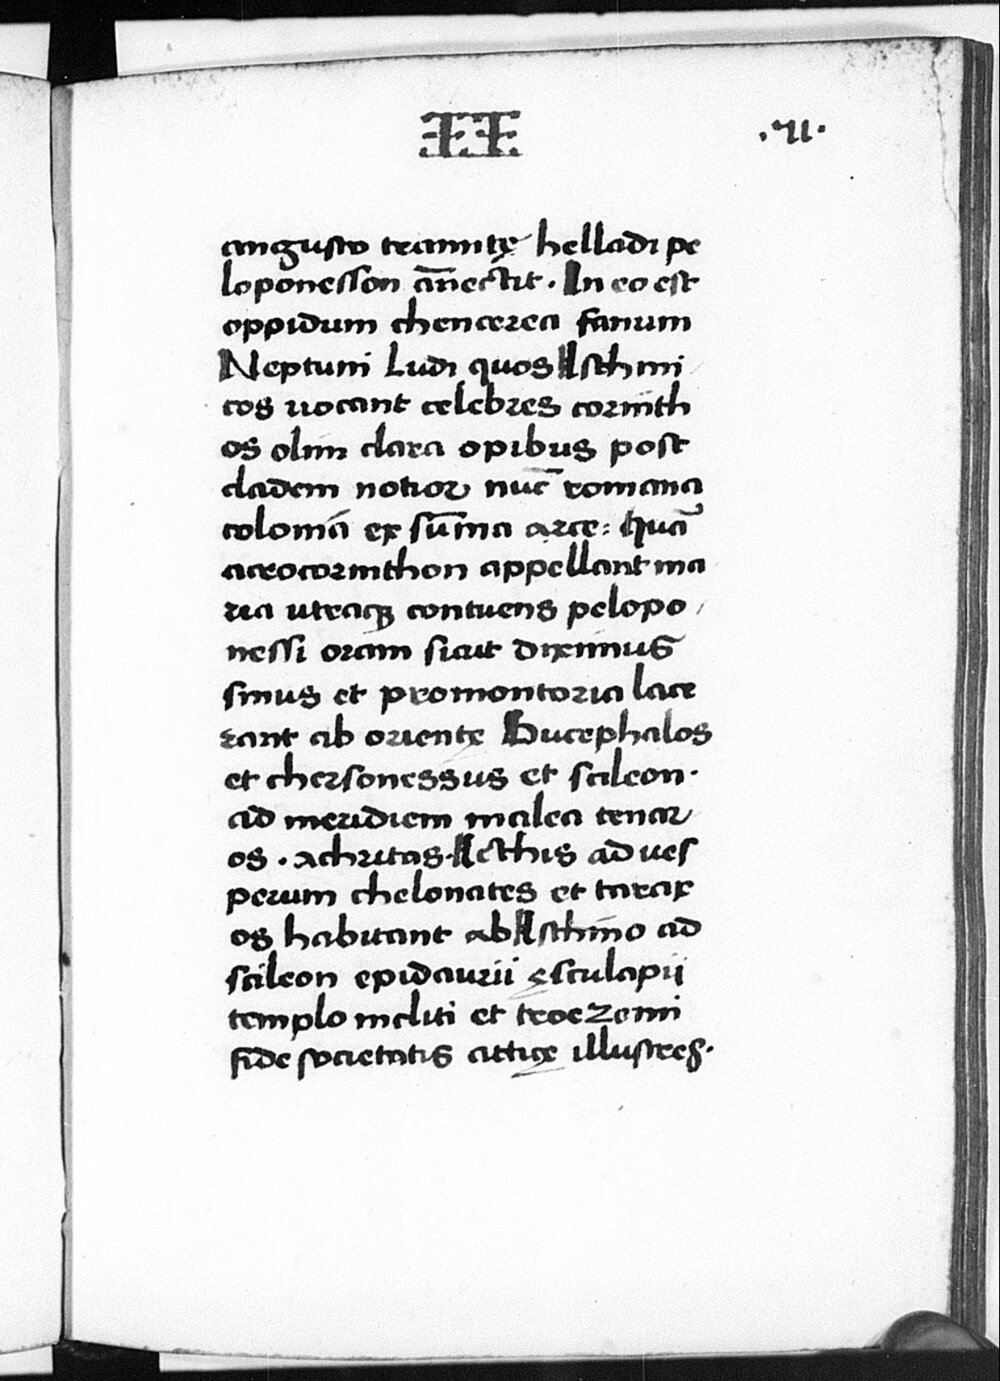 II .vii.
angusto tramitę helladi pe
loponesson ān̄ectit. In eo est
oppidum chencerea fanum
Neptuni Ludi quos Isthmi
cos uocant celebres corinth
os olim clara opibus post
cladem notior nuc̄ romana
colonia ex sūma arce: quā
acrocorinthon appellant ma
ria utraqꝫ contuens pelopo
nessi oram sicut diximus
sinus et promontoria lace
rant ab orientę Bucephalos
et chersonessus et scileon.
ad meridiem malea tenar
os. achritas. Icthis ad ues
perum chelonates et tarax
os habitant ab Isthmo ad
scileon epidaurii ęsculapii
templo incliti et troezenii
fide societatis atticę illustres.